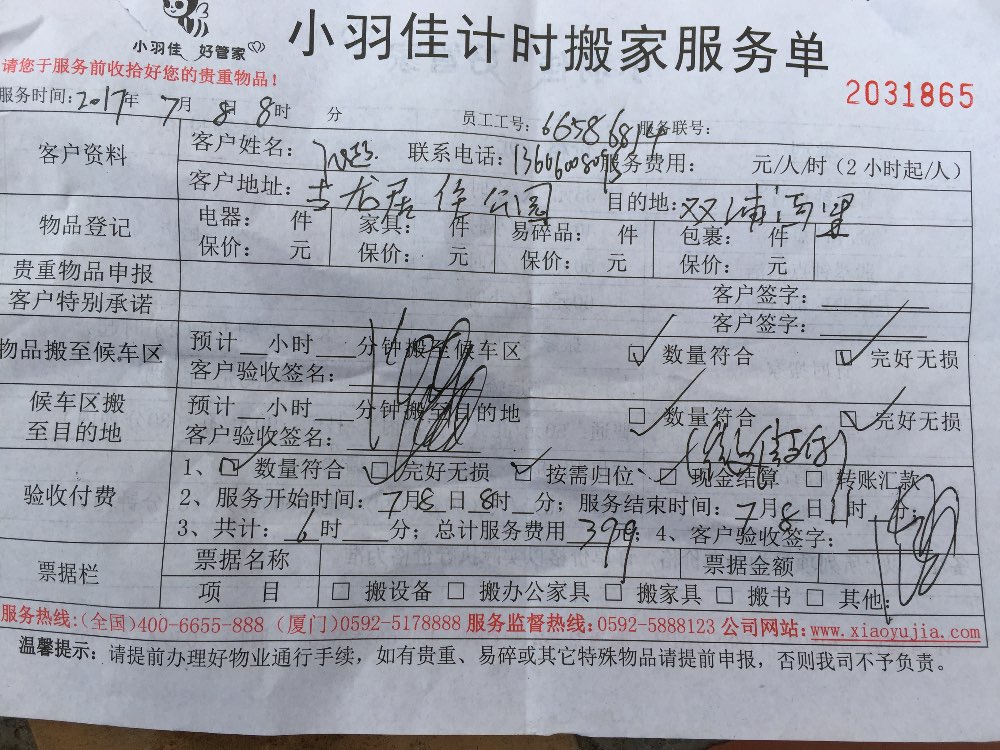 小羽佳 好管家
小羽佳计时搬家服务单
请您于服务前收拾好您的贵重物品!
2031865
服务时间:2017年7月8日8时 分 员工工号: 服务联号:
客户资料
客户姓名: 联系电话: 服务费用: 元/人/时(2小时起/人)
客户地址: 目的地:
物品登记
电器: 件 家具: 件 易碎品: 件 包裹: 件
保价: 元 保价: 元 保价: 元 保价: 元
贵重物品申报
客户签字:
客户特别承诺
客户签字:
物品搬至候车区
预计__小时___分钟搬至候车区 ☑ 数量符合 ☑ 完好无损
客户验收签名:
候车区搬
至目的地
预计__小时___分钟搬至目的地 ☑ 数量符合 ☑ 完好无损
客户验收签名:
验收付费
1、☑ 数量符合 ☑ 完好无损 ☑ 按需归位 ☑ 现金结算 (微信支付) □ 转账汇款
2、服务开始时间:7月8日8时__分;服务结束时间:7月8日11时__分;
3、共计:6时___分;总计服务费用399;4、客户验收签字:
票据栏
票据名称 票据金额
项 目 □ 搬设备 □ 搬办公家具 □ 搬家具 □ 搬书 □ 其他:
服务热线:(全国)400-6655-888 (厦门)0592-5178888 服务监督热线:0592-5888123 公司网站:www.xiaoyujia.com
温馨提示:请提前办理好物业通行手续,如有贵重、易碎或其它特殊物品请提前申报,否则我司不予负责。